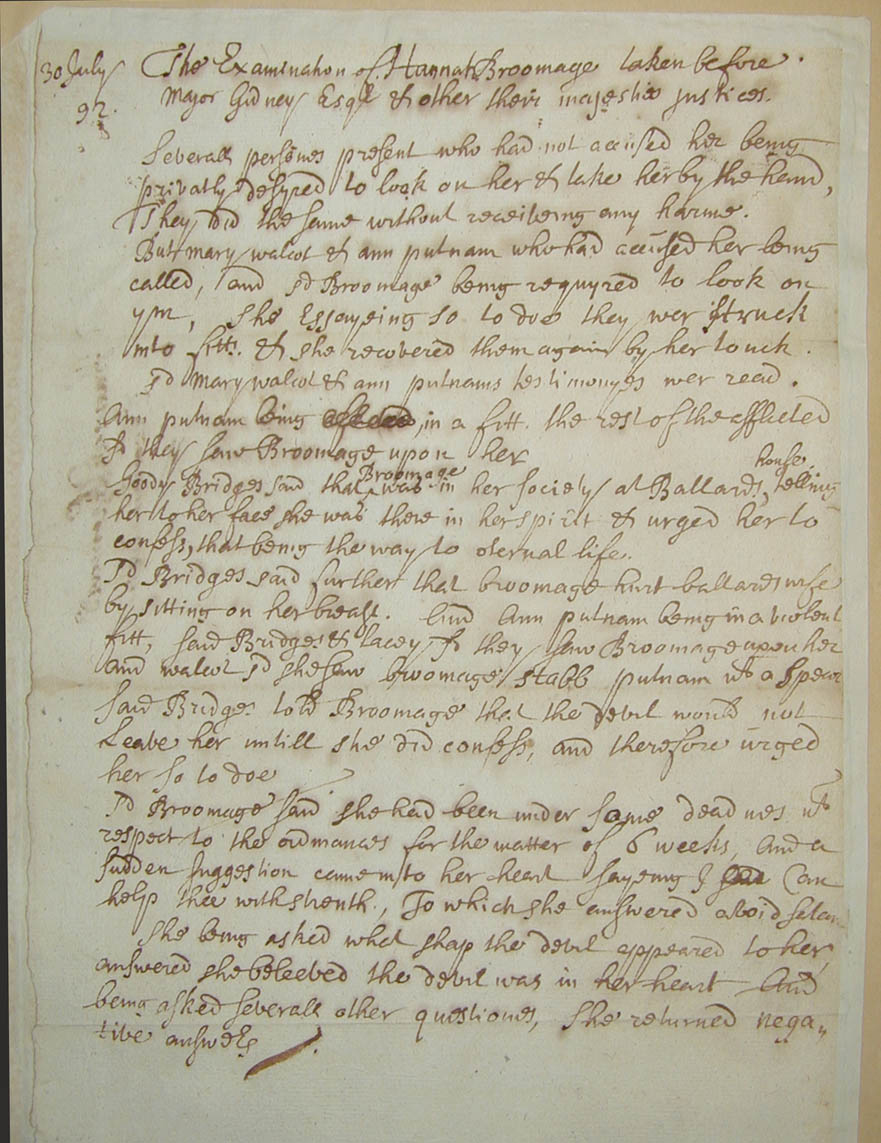 30 July The Examination of Hannah Broomage taken before
92. Major Gidney Esqr & other their majesties justices.
Severall persones present who had not accused her being
privatly desyred to look on her & take her by the hand,
They did the same without receiveing any harme.
But mary walcot & ann putnam who had accused her being
called, and sd Broomage being requyred to look on
ym, she Essayeing so to doe they wer struck
into fitts. & she recovered them again by her touch.
Sd Mary walcot & ann putnams testimonyes wer read.
Ann putnam being , in a fitt. the rest of the afflicted
sd they saw Broomage upon her
Goody Bridges said that Broomage was in her society at Ballards house, telling
her to her face she was there in her spirit & urged her to
confess, that being the way to eternal life.
Sd Bridges said further that broomage hurt ballards wife
by sitting on her breast. And Ann putnam being in a violent
fitt, said Bridges & Lacey sd they saw Broomage upon her
And walcot sd she saw broomage stabb putnam wt a spear
Said Bridges told Broomage that the devil would not
Leave her untill she did confess, and therefore urged
her so to doe
Sd Broomage said she had been under some deadnes wt
respect to the ordinances for the matter of 6 weeks, And a
sudden suggestion came into her heart sayeing I can
help thee with strenth, To which she answered avoid satan
She being asked what shap the devil appeared to her
answered she beleeved the devil was in her heart And
being asked severall other questiones, she returned nega„
tive answers